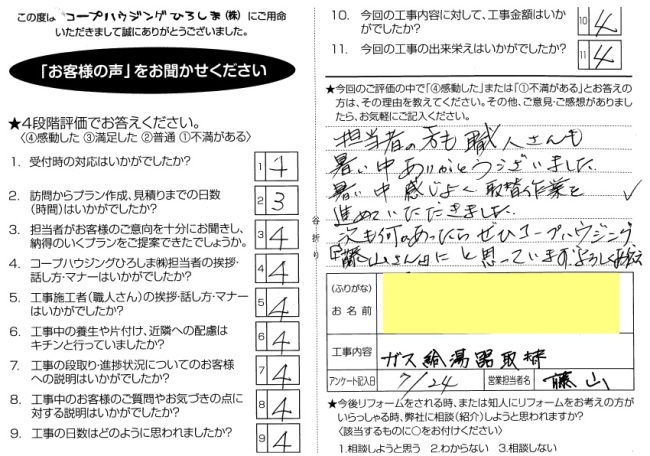 この度は コープハウジングひろしま(株) にご用命
いただきまして誠にありがとうございました。
「お客様の声」をお聞かせください
★4段階評価でお答えください。
〈④感動した ③満足した ②普通 ①不満がある〉
1. 受付時の対応はいかがでしたか?
1 4
2. 訪問からプラン作成、見積りまでの日数
(時間)はいかがでしたか?
2 3
3. 担当者がお客様のご意向を十分にお聞きし、
納得のいくプランをご提案できたでしょうか。
3 4
4. コープハウジングひろしま㈱担当者の挨拶・
話し方・マナーはいかがでしたか?
4 4
5. 工事施工者(職人さん)の挨拶・話し方・マナー
はいかがでしたか?
5 4
6. 工事中の養生や片付け、近隣への配慮は
キチンと行っていましたか?
6 4
7. 工事の段取り・進捗状況についてのお客様
への説明はいかがでしたか?
7 4
8. 工事中のお客様のご質問やお気づきの点に
対する説明はいかがでしたか?
8 4
9. 工事の日数はどのように思われましたか?
9 4
谷折り
10. 今回の工事内容に対して、工事金額はいか
がでしたか?
10 4
11. 今回の工事の出来栄えはいかがでしたか?
11 4
★今回のご評価の中で「④感動した」または「①不満がある」とお答えの
方は、その理由を教えてください。その他、ご意見・ご感想がありまし
たら、お気軽にご記入ください。
担当者の方も職人さんも
暑い中ありがとうございました
暑い中感じよく取替作業を
進めていただきました。
次も何かあったらぜひコープハウジング
「藤山さん」にと思っています。よろしく
(ふりがな)
お名前
工事内容 ガス給湯器取替
アンケート記入日 7/24 営業担当者名 藤山
★今後リフォームをされる時、または知人にリフォームをお考えの方が
いらっしゃる時、弊社に相談(紹介)しようと思われますか?
〈該当するものに○をお付けください〉
1.相談しようと思う 2.わからない 3.相談しない